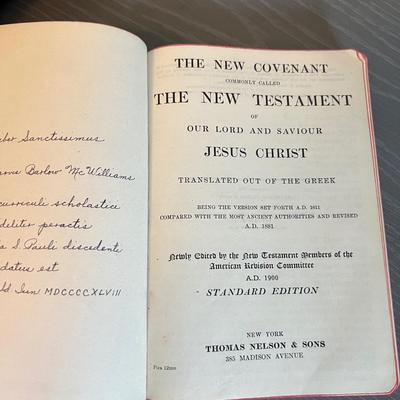 ber Sanctissimus
arvs Barlow McWilliams
curriculi scholastici
deliter peractis
a S. Pauli discedente
datus est
ld Iun MDCCCCXLVIII
THE NEW COVENANT
COMMONLY CALLED
THE NEW TESTAMENT
OF
OUR LORD AND SAVIOUR
JESUS CHRIST
TRANSLATED OUT OF THE GREEK
BEING THE VERSION SET FORTH A.D. 1611
COMPARED WITH THE MOST ANCIENT AUTHORITIES AND REVISED
A.D. 1881
Newly Edited by the New Testament Members of the
American Revision Committee
A.D. 1900
STANDARD EDITION
NEW YORK
THOMAS NELSON & SONS
385 MADISON AVENUE
Pica 12mo